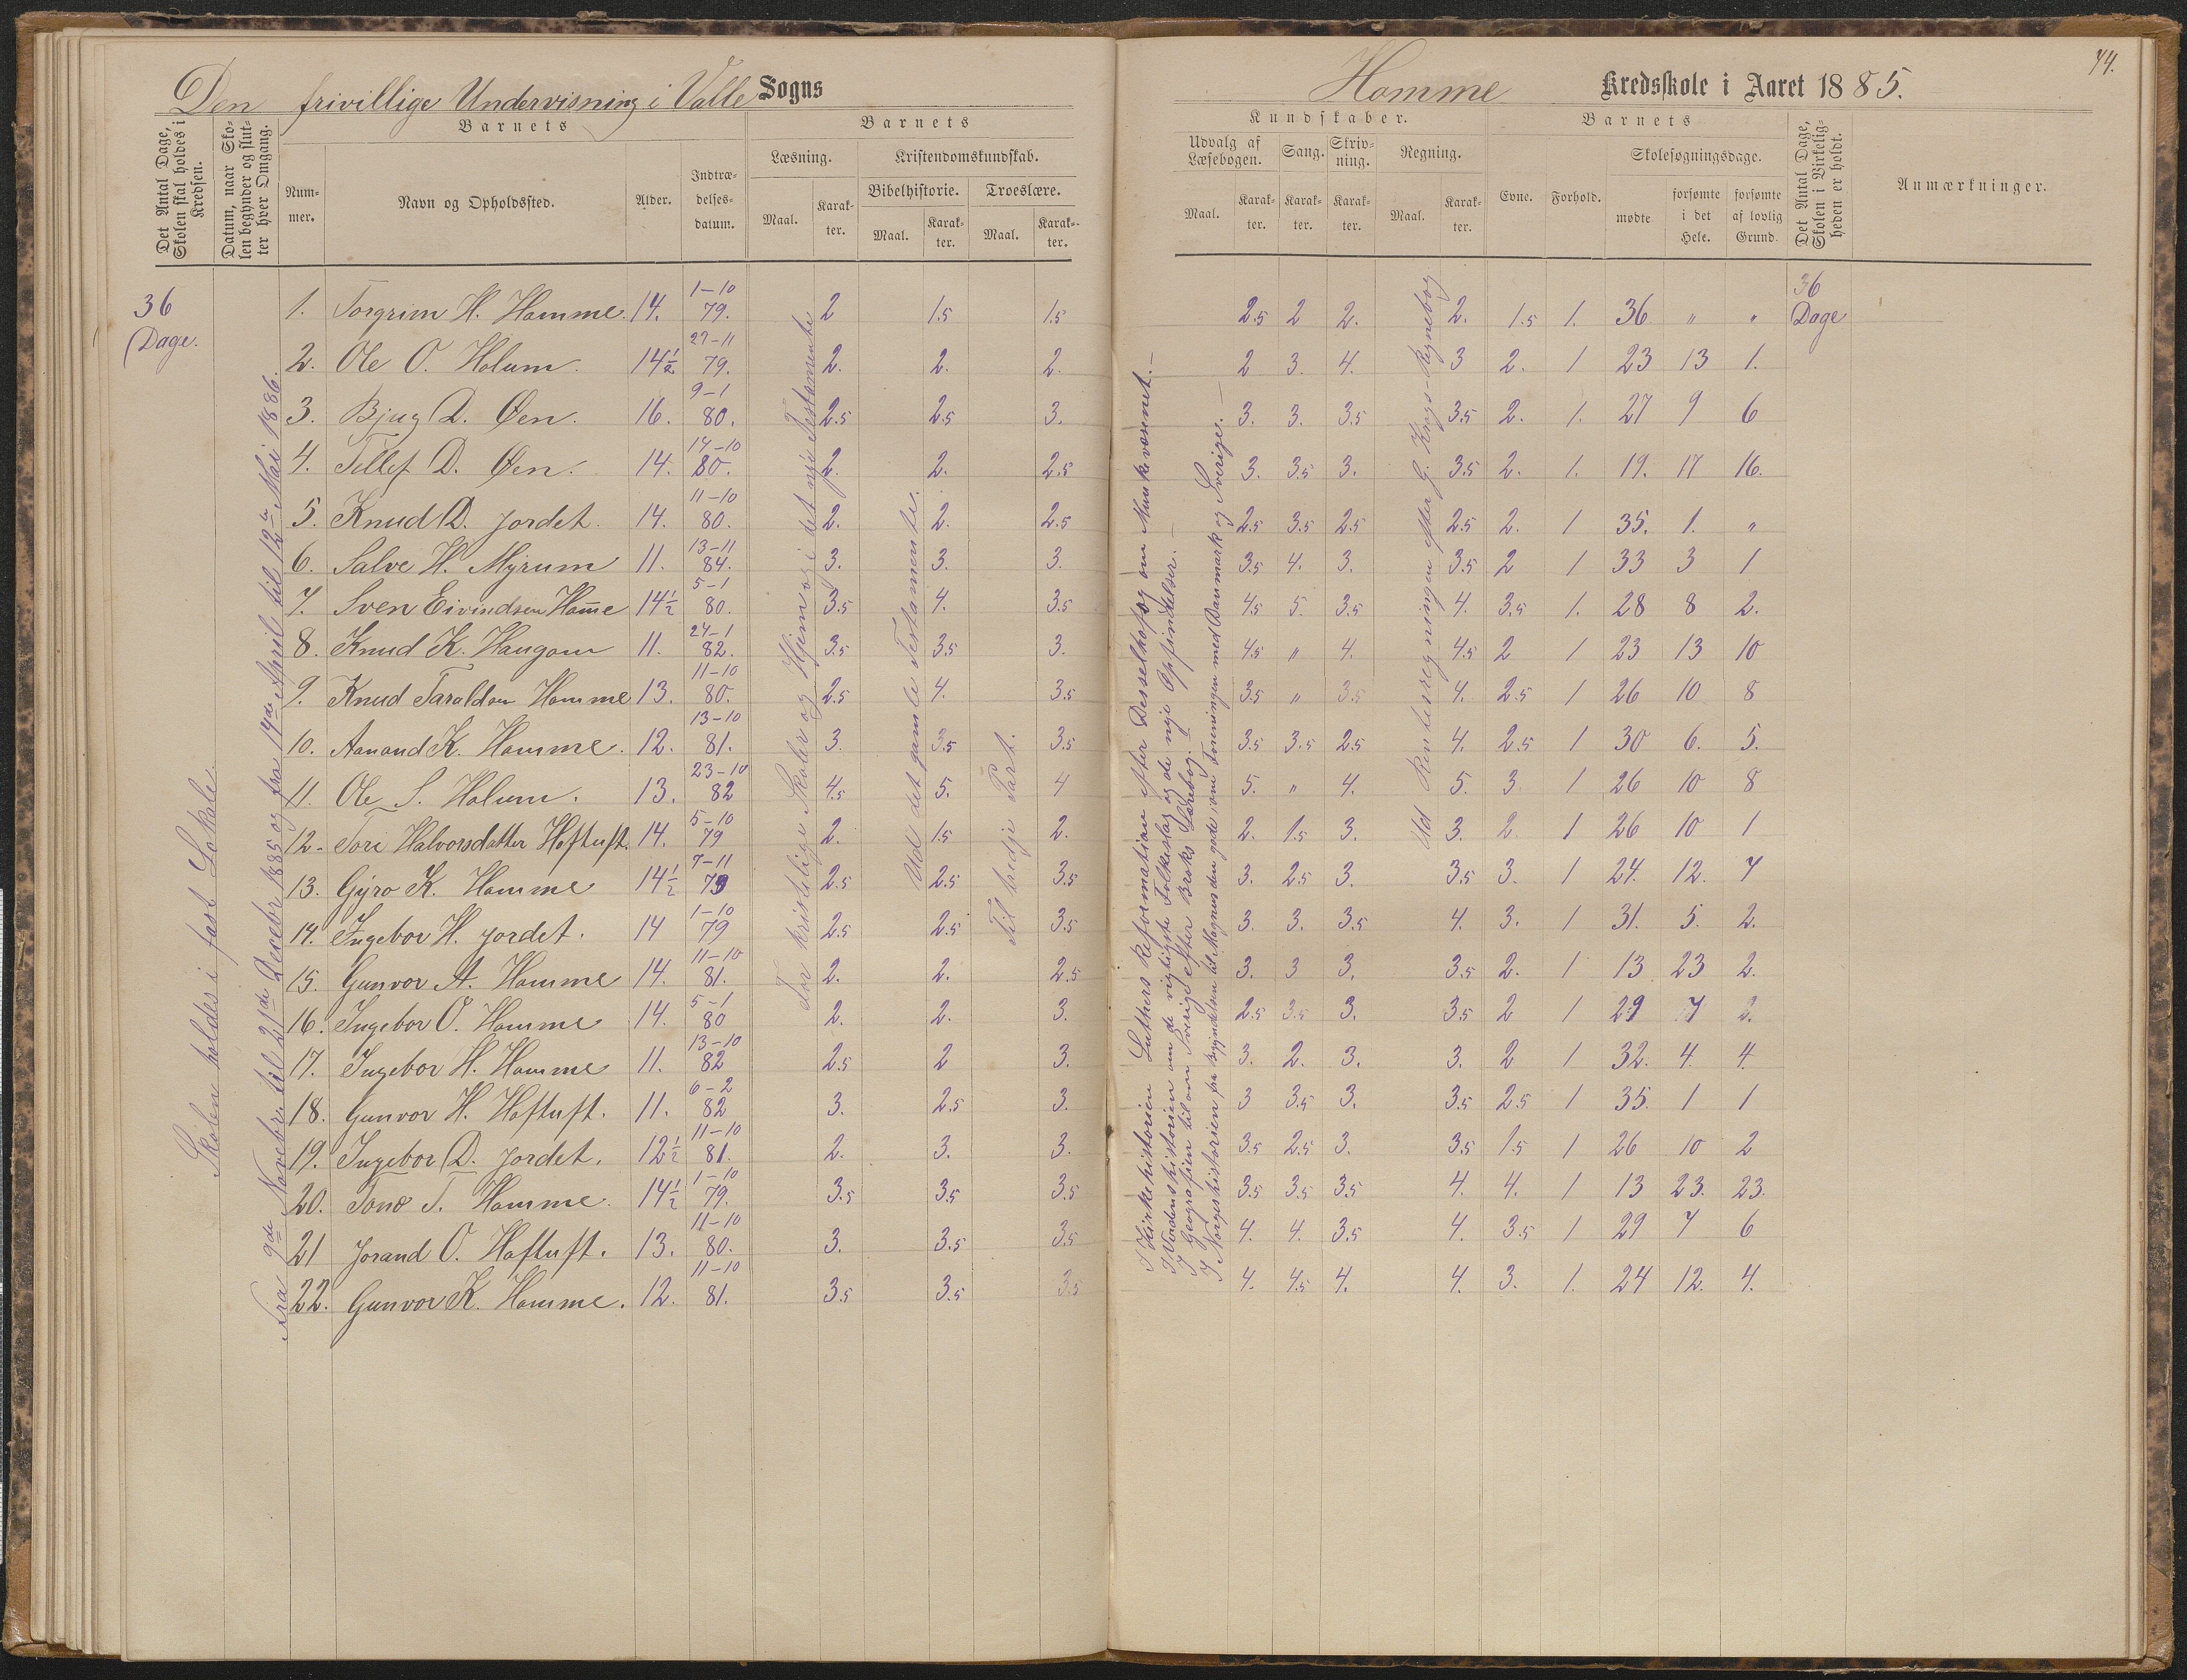 Den frivillige Undervisning i Valle Sogns
Det Antal Dage, Skolen skal holdes i Kredsen.
Datum, naar Skolen begynder og slutter hver Omgang.
Barnets
Nummer.
Navn og Opholdssted.
Alder.
Indtrædelsesdatum.
Barnets
Læsning.
Maal.
Karakter.
Kristendomskundskab.
Bibelhistorie.
Maal.
Karakter.
Troeslære.
Maal.
Karakter.
36 Dage.
Skolen holdes i fast Lokale.
Fra 9de Novebr. til 21de Decebr 1885 og fra 14de April til 12te Mai 1886.
For kristelige Skoler og Hjem og i det nye Testamente
Ud det gamle Testamente.
Til tredje Part.
1. Torgrim H. Homme. 14. 1-10 79. 2 1.5 1.5
2. Ole O. Holum. 14½ 27-11 79. 2. 2. 2.
3. Bjug D. Øen. 16. 9-1 80. 2.5 2.5 3.
4. Tellef D. Øen. 14. 14-10 80. 2. 2. 2.5
5. Knud D. Jordet. 14. 11-10 80. 2. 2. 2.5
6. Salve H. Myrum 11. 13-11 84. 3. 3. 3.
7. Sven Eivindsen Hom̅e 14½ 5-1 80. 3.5 4. 3.5
8. Knud K. Haugom 11. 24-1 82. 3.5 3.5 3.
9. Knud Taraldsen Homme 13. 11-10 80. 2.5 4. 3.5
10. Aanond K. Homme. 12. 13-10 81. 3. 3.5 3.5
11. Ole S. Holum. 13. 23-10 82 4.5 5. 4
12. Tori Halvorsdatter Hoftuft. 14. 5-10 79 2. 1.5 2.
13. Gyro K. Homme 14½ 7-11 79 2.5 2.5 3.5
14. Ingebor H. Jordet. 14 1-10 79 2.5 2.5 3.5
15. Gunvor A. Homme 14. 11-10 81. 2. 2. 2.5
16. Ingebor O. Homme 14. 5-1 80 2. 2. 3.
17. Ingebor H. Homme 11. 13-10 82 2.5 2 3.
18. Gunvor H. Hoftuft. 11. 6-2 82 3. 2.5 3.
19. Ingebor D. Jordet. 12½ 11-10 81. 2. 3. 3.
20. Tone T. Homme. 14½ 1-10 79. 3.5 3.5 3.5
21 Jorand O. Hoftuft. 13. 11-10 80. 3. 3.5 3.5
22. Gunvor K. Homme. 12. 11-10 81. 3.5 3.5 3.5
44.
Homme Kredsskole i Aaret 1885.
Kundskaber.
Udvalg af Læsebogen.
Maal.
Karakter.
Sang.
Karakter.
Skrivning.
Karakter.
Regning.
Maal.
Karakter.
Barnets
Evne.
Forhold.
Skolesøgningsdage.
mødte
forsømte i det Hele.
forsømte af lovlig Grund.
Det Antal Dage, Skolen i Virkeligheden er holdt.
Anmærkninger.
I Kirkehistorien Luthers Reformation efter Desselhof og om Munkevæsenet.
I Verdenshistorien om de vigtigste Folkeslag og de nye Opfindelser.
I Geografien til om Sverige efter Broks Lærebog.
I Norgeshistorien fra Begyndelsen til Magnus den gode om Foreningen med Danmark og Sverige.
Ud Rentesregningen efter J. Krogs Regnebog
2.5 2 2. 2. 1.5 1. 36 " " 36 Dage
2 3. 4. 3 2. 1 23 13 1.
3. 3. 3.5 3.5 2. 1. 27 9 6
3. 3.5 3. 3.5 2. 1. 19. 17 16.
2.5 3.5 2.5 2.5 2. 1 35. 1. "
3.5 4. 3. 3.5 2 1 33 3 1
4.5 5. 3.5 4. 3.5 1. 28 8 2.
4.5 " 4. 4.5 2 1 23 13 10
3.5 " 3.5 4. 2.5 1 26 10 8
3.5 3.5 2.5 4. 2.5 1 30 6. 5.
5. " 4. 5. 3. 1 26 10 8
2. 1.5 3. 3. 2. 1 26 10 1
3. 2.5 3. 3.5 3. 1 24. 12. 7
3. 3. 3.5 4. 3. 1 31. 5. 2.
3. 3 3. 3.5 2. 1 13 23 2.
2.5 3.5 3. 3.5 2 1 29 7 2.
3. 2. 3. 3. 2 1 32. 4. 4.
3 3.5 3. 3.5 2.5 1 35. 1 1
3.5 2.5 3. 3.5 1.5 1 26 10 2
3.5 3.5 3.5 4. 4. 1 13 23. 23.
4. 4. 3.5 4. 3.5 1 29 7 6
4. 4.5 4. 4. 3. 1. 24 12. 4.